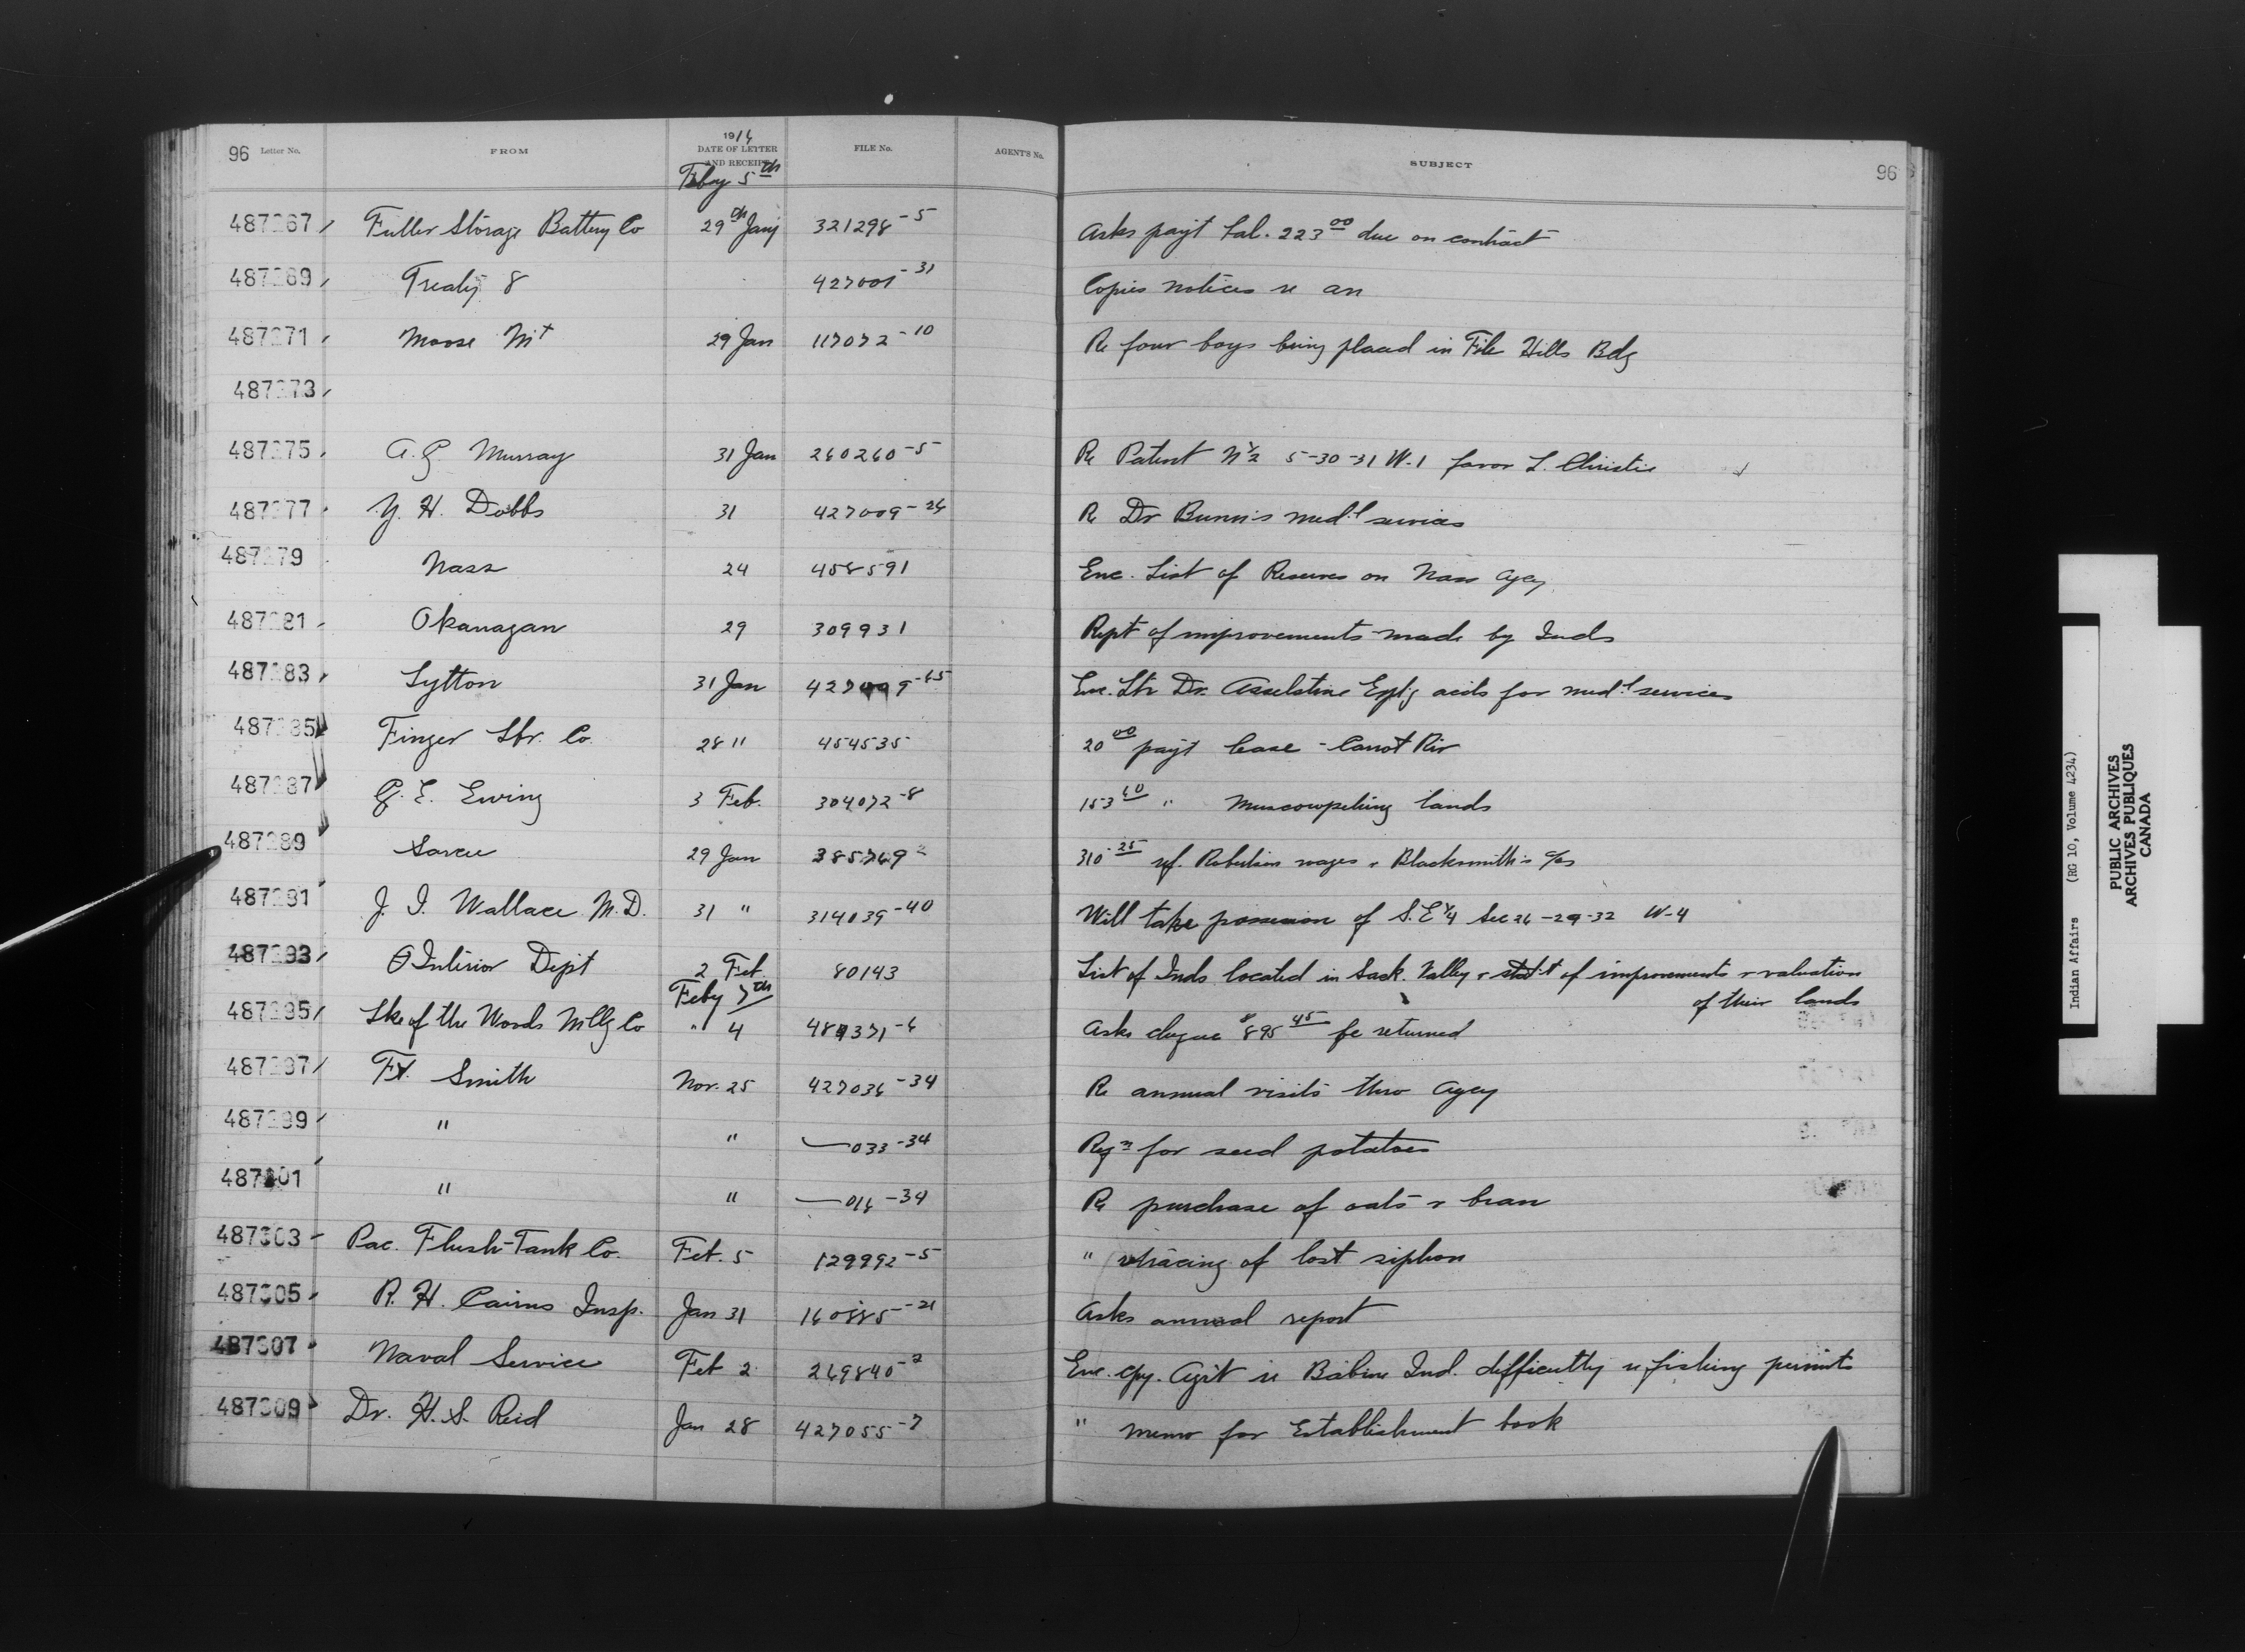 96 Letter No. FROM 1914 DATE OF LETTER AND RECEIPT FILE No. AGENT'S No. SUBJECT 96
Feby 5th
487267 Fuller Storage Battery Co 29th Jany 321298-5 Asks payt bal. 223.00 due on contract
487269 Treaty 8 427001-31 Copies notices re an
487271 Moose Mt 29 Jan 117072-10 Re four boys being placed in File Hills Bdg
487273
487275 A.G. Murray 31 Jan 260260-5 Re Patent N½ 5-30-31 W-1 favor L. Christie
487277 Y. H. Dobbs 31 427009-24 Re Dr medl services
487279 Nass 24 458591 Enc. List of Reserves on Nass Agcy
487281 Okanagan 29 309931 Rept of improvements made by Inds
487283 Lytton 31 Jan Enc. Ltr Dr. Asselstine Explg accts for medl services
487285 Finger Lbr. Co. 28 " 454535 20.00 payt lease - Carrot Riv
487287 G. E. Ewing 3 Feb. 304072-8 153.60 " Muscowpetung lands
487289 Sarcee 29 Jan 310.25 wages & Blacksmith's a/cs
487291 J. I. Wallace M.D. 31 " 314039-40 Will take possession of S.E¼ Sec 26-29-32 W-4
487293 Interior Dept 2 Feb. 80143 List of Inds located in Sack. Valley & statt of improvements & valuation
of their lands
Feby 7th
487295 Lke of the Woods Mllg Co " 4 Asks cheque $895.45 be returned
487297 Ft. Smith Nov. 25 427036-34 Re annual visits thro agcy
487299 " " —033-34 Reqn for seed potatoes
487301 " " —016-34 Re purchase of oats & bran
487303 Pac. Flush-Tank Co. Feb. 5 129992-5 " tracing of lost siphon
487305 R. H. Cairns Insp. Jan 31 Asks annual report
487307 Naval Service Feb 2 269840-2 Enc. cpy. Agrt re Babine Ind. difficulty re fishing permits
487309 Dr. H. S. Reid Jan 28 427055-7 " memo for Establishment book
Indian Affairs (RG 10, Volume 4234)
PUBLIC ARCHIVES
ARCHIVES PUBLIQUES
CANADA